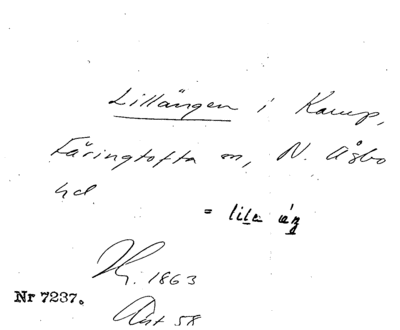 Lillängen i Karup,
Färingtofta sn, N. Åsbo
hd.
= lila äŋ
1863
Nr 7237.
58